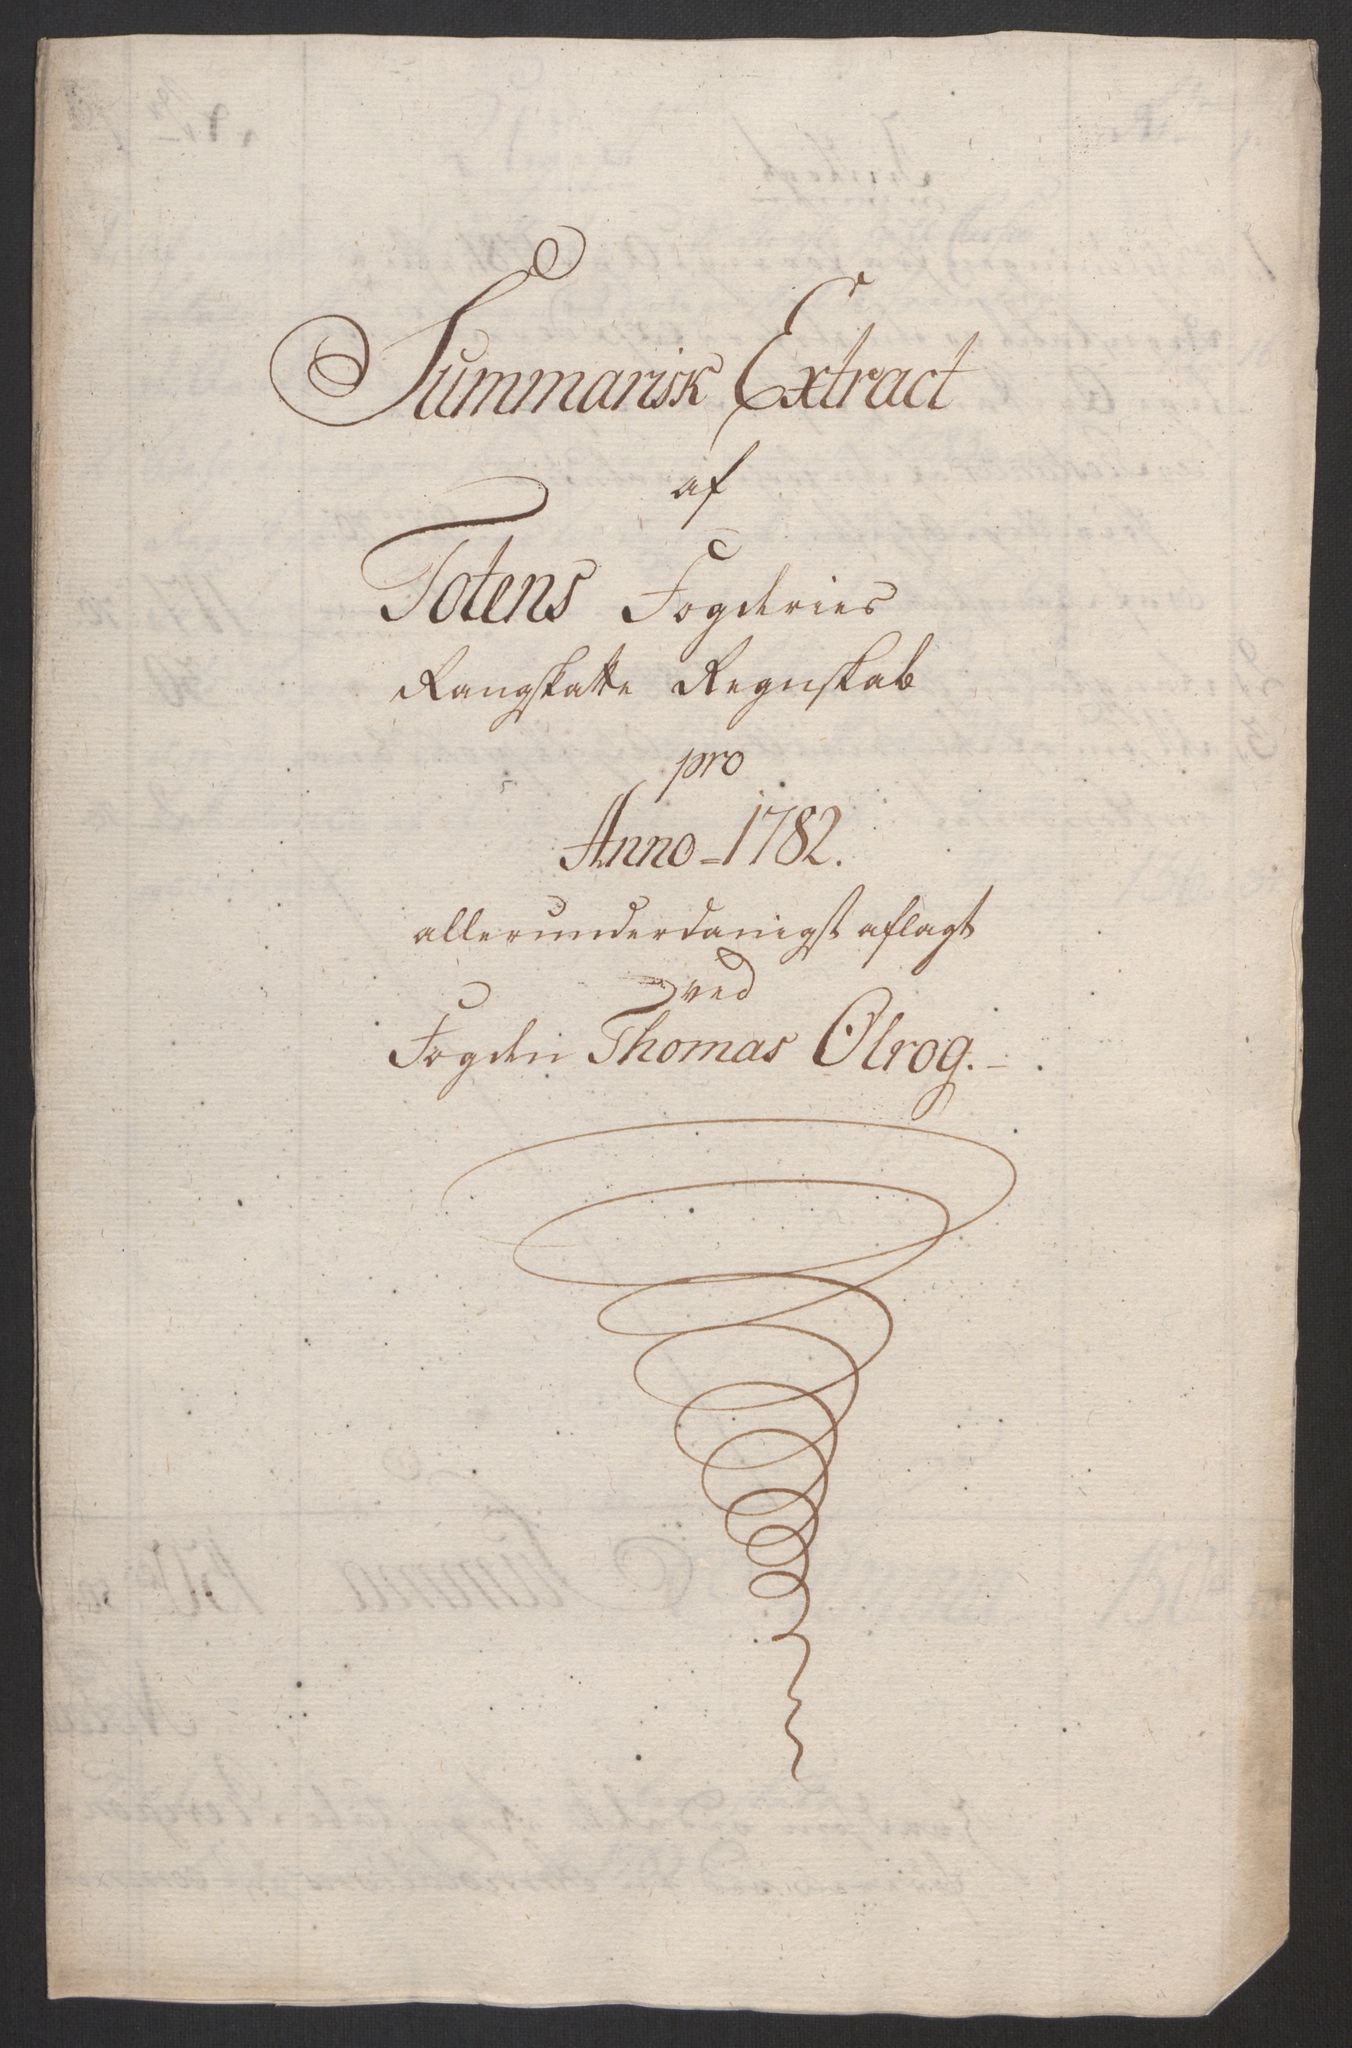 Summarisk Extract
af
Totens Fogderies
Rangskatte Regnskab
pro
Anno - 1782.
allerunderdanigst aflagt
ved
Fogden Thomas Ølrog. -